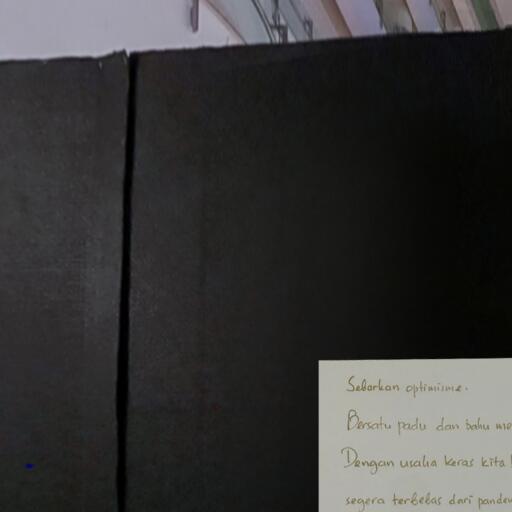 Sebarkan optimisme.
Bersatu padu dan bahu
Dengan usaha keras kita
segera terbebas dari